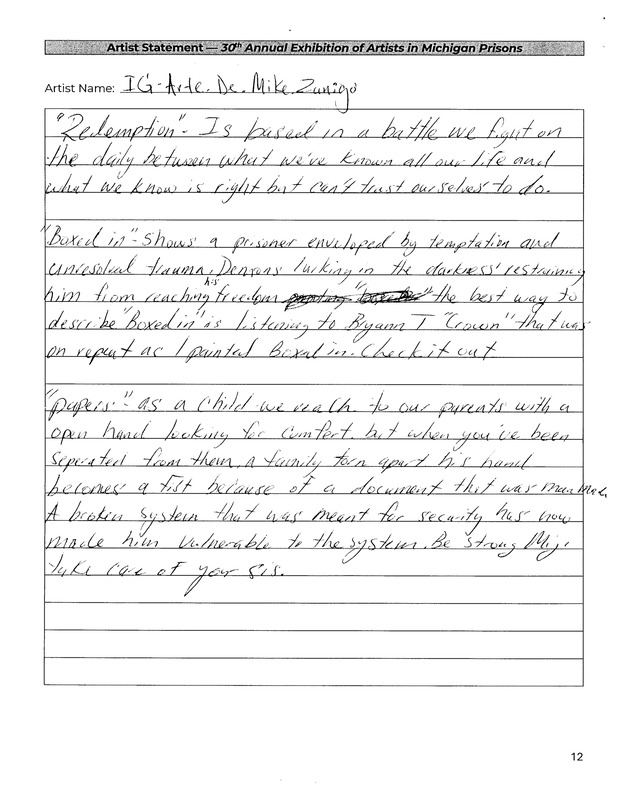 Artist Statement — 30th Annual Exhibition of Artists in Michigan Prisons
Artist Name: IG-Arte.De.Mike.Zunigo
"Redemption"- Is based in a battle we fight on
the daily between what we've known all our life and
what we know is right but can't trust ourselves to do.
"Boxed in"- Shows a prisoner enveloped by temptation and
unresolved trauma. Demons lurking in the darkness' restraining
him from reaching his freedom the best way to
describe "Boxed in" is listening to Bryann T "Crown" that was
on repeat as I painted Boxed in. Check it out
"papers"- as a child we reach to our parents with a
open hand looking for comfort. but when you've been
seperated from them, a family torn apart his hand
becomes a fist because of a document that was man made.
A broken system that was meant for security has now
made him vulnerable to the system. Be strong Mijo
take care of your sis.
12